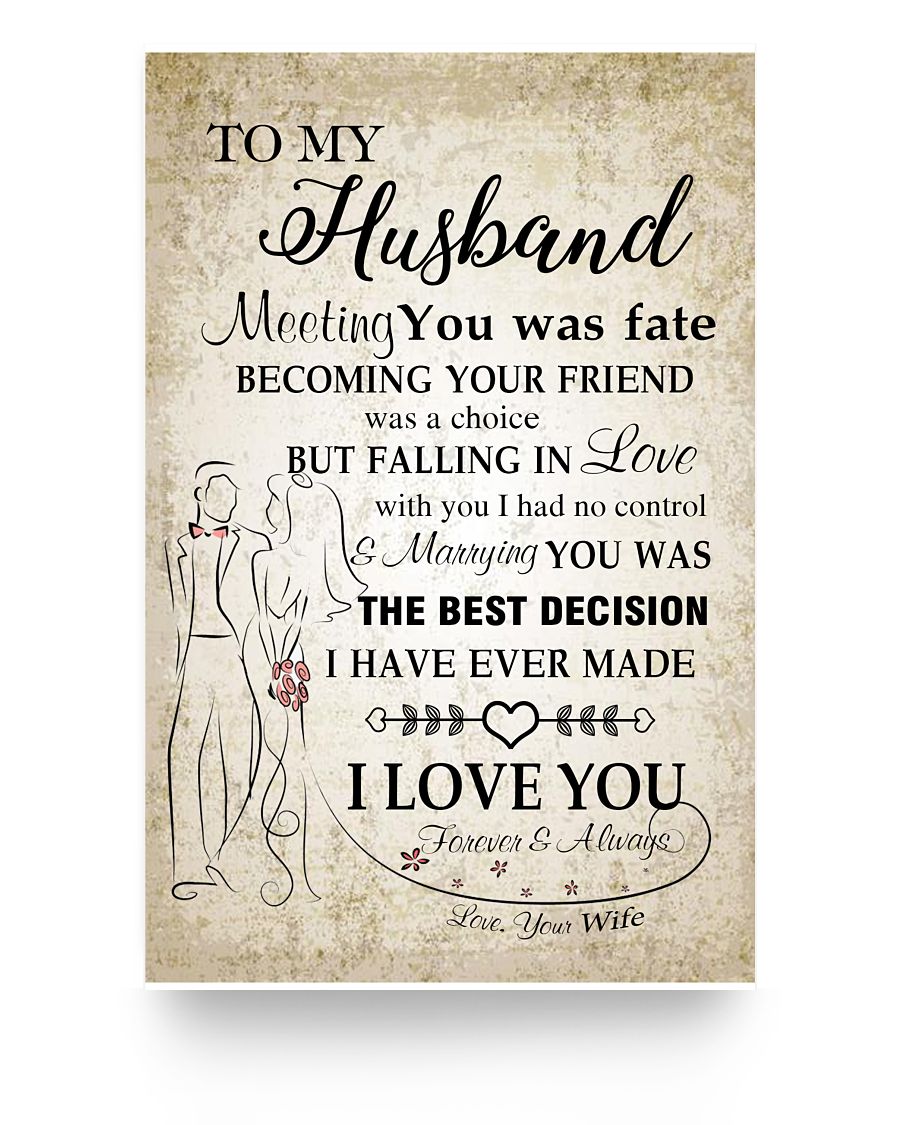 TO MY
Husband
Meeting You was fate
BECOMING YOUR FRIEND
was a choice
BUT FALLING IN Love
with you I had no control
& Marrying YOU WAS
THE BEST DECISION
I HAVE EVER MADE
I LOVE YOU
Forever & Always
Love, Your Wife